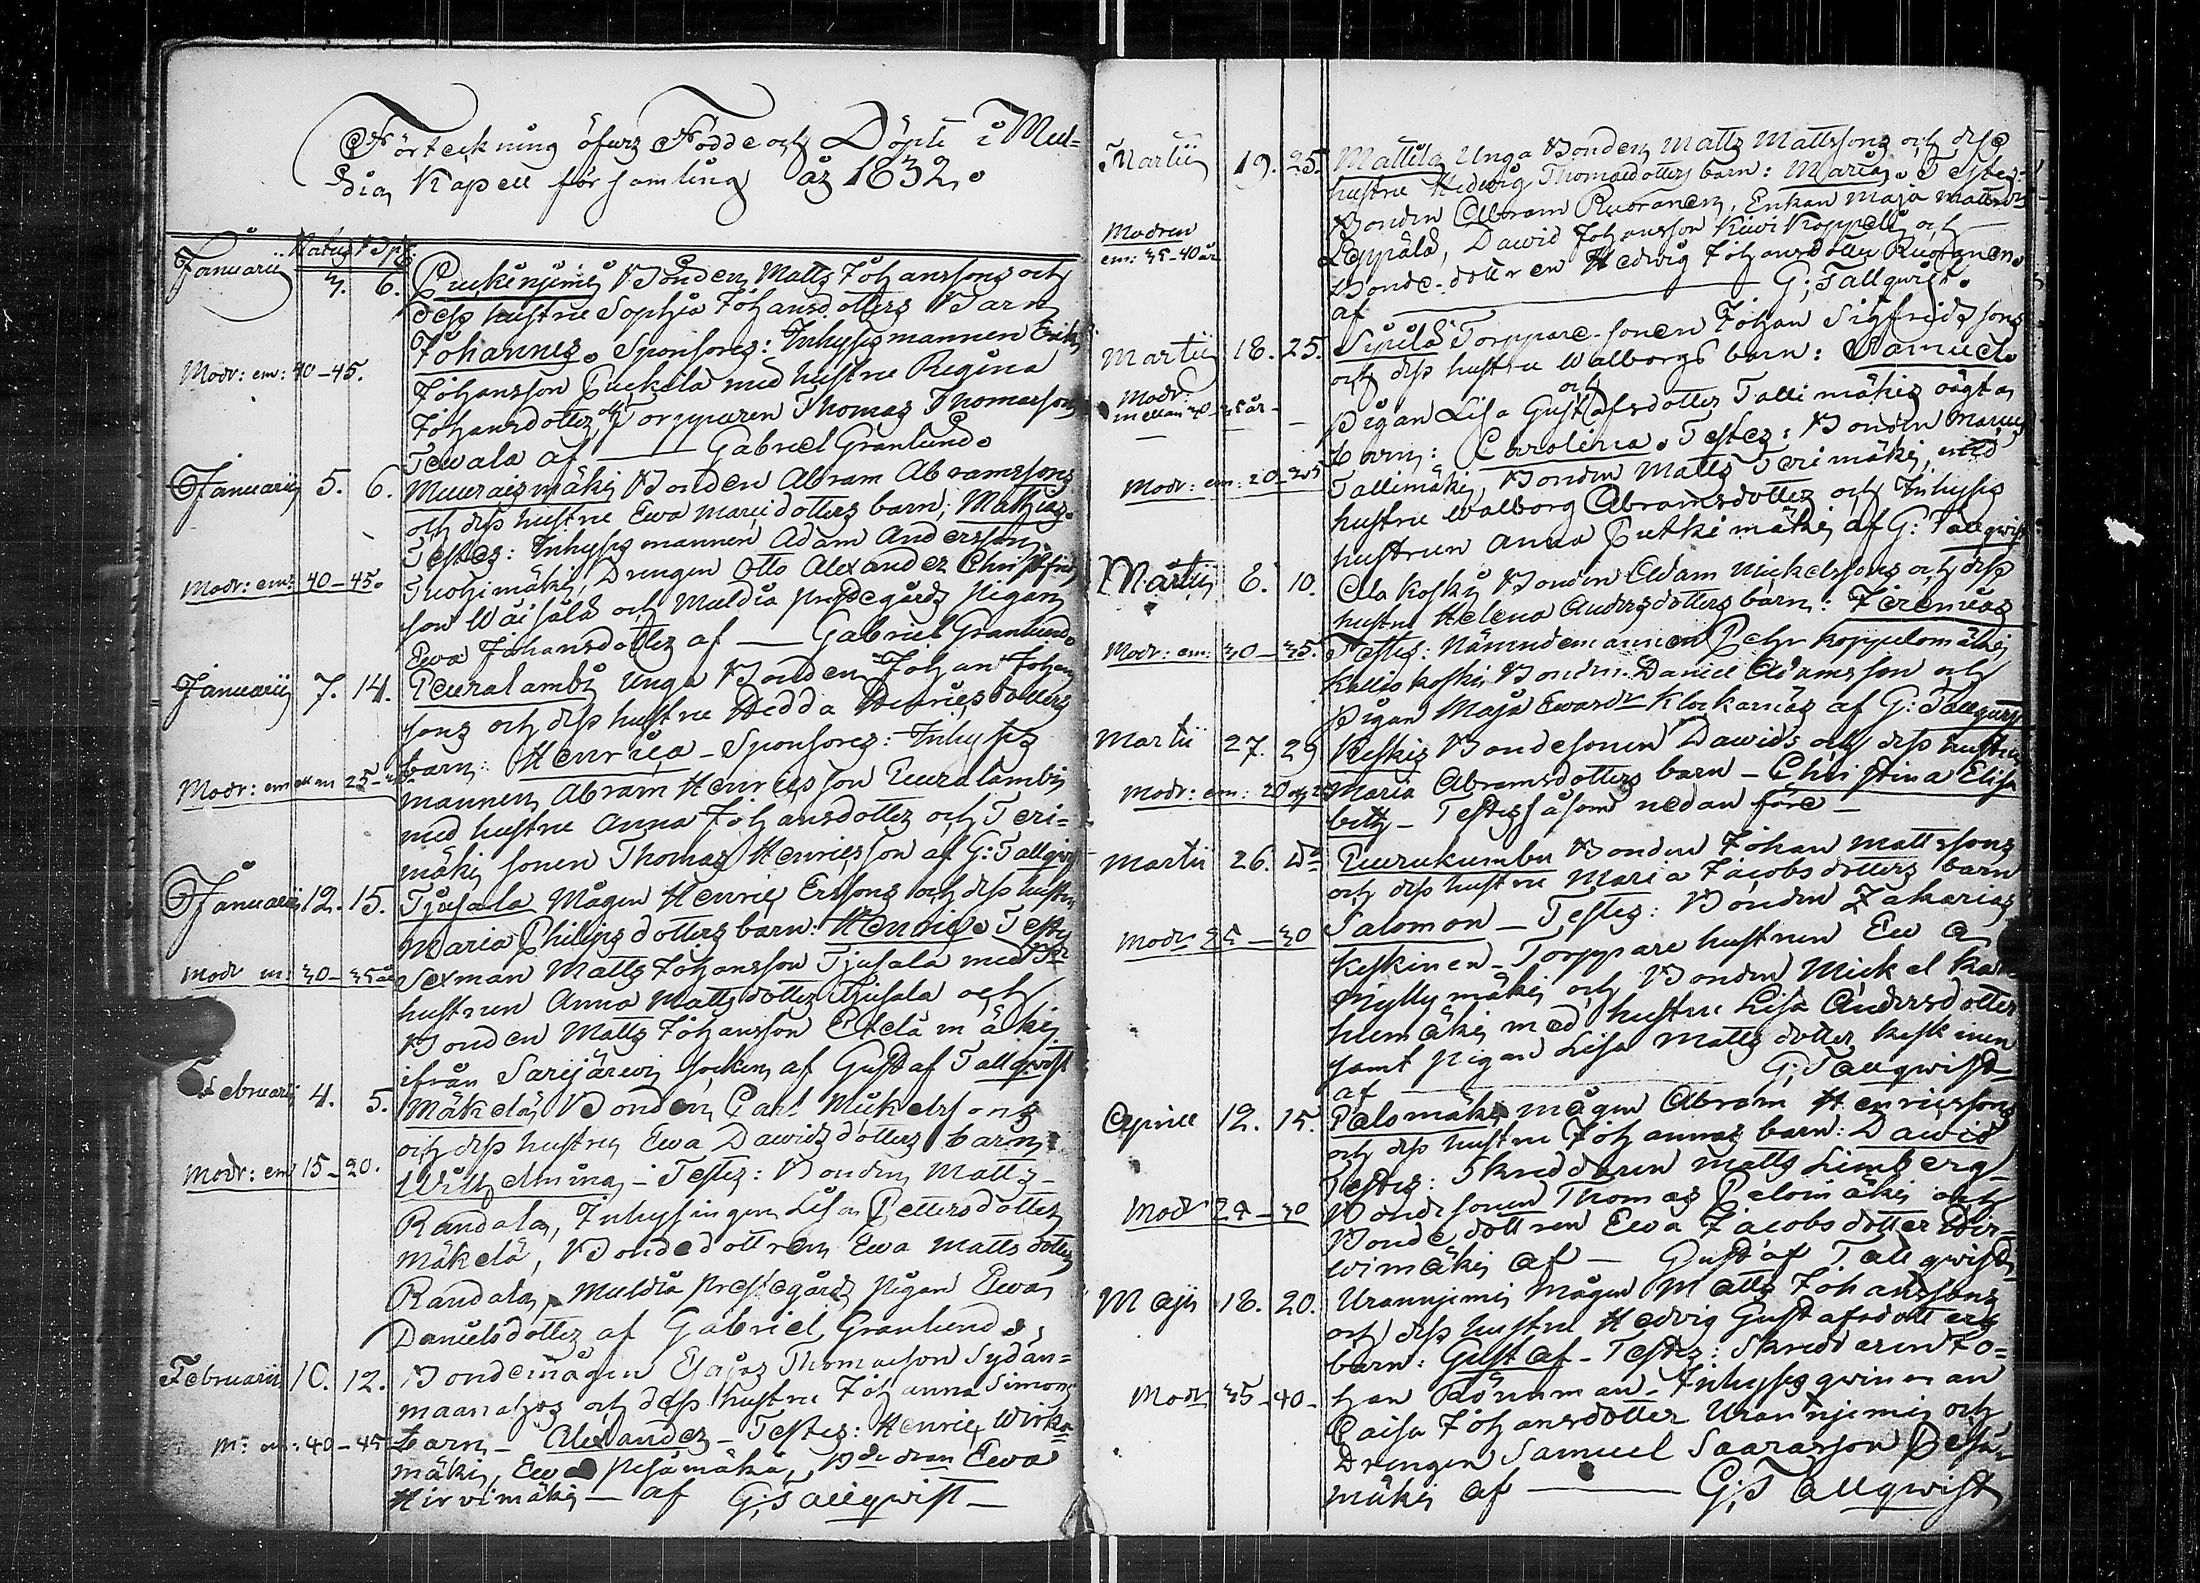 Förteckning öfver Födde och Döpte i Mul-
dia Kapell församling år 1832.
Januarii
Natus Dpt.
3. 6. Puckinjemi Bonden Matts Johanssons och
dess hustru Sophia Johansdotters Barn
Johannes. Sponsores: Inhysesmannen Erik
Modr: em: 40-45. Johansson Puckila med hustru Regina
Johansdotter, och Torpparen Thomas Thomasson
Tewala af — Gabriel Granlund.
Januarii 5. 6. Muuraismäki Bonden Abram Abramssons
och dess hustru Ewa Mariedotters barn; Mathias.
Testes: Inhyses mannen Adam Andersson
Modr: em: 40-45. Tuohimäki, Drengen Otto Alexander
son Waisälä och Muldia prestegårds Pigan
Ewa Johansdotter af — Gabriel Granlund.
Januarii 7. 14. Peuralambi Unga Bonden Johan Johan
sons och dess hustru Hedda Henricsdotters
barn: Henrica - Sponsores: Inhyses
Modr: emellan 25-
mannen Abram Henricsson Peuralambi
med hustru Anna Johansdotter och Teri-
mäki sonen Thomas Henricsson af G: Tallqvist
Januarii 12. 15. Tjusala Mågen Henric Erssons och dess hustru
Maria Philipsdotters barn: Henric. Testes
Modr em: 30-35 år Sexman Matts Johansson Tjusala med
hustrun Anna Mattsdotter Tjusala och
Bonden Matts Johansson Etelämäki
ifrån Sarijärwi Socken, af Gustaf Tallqvist
Februarii 4. 5. Mäkelä, Bonden Carl Mickelssons
och dess hustru Ewa Dawidsdotters barn
Modr: em: 15-20. Wilhelmina - Testes: Bonden Matts
Randala, Inhysingen Lisa Pettersdotter
Mäkelä, Bondedottren Ewa Mattsdotter
Randala, Muldia prestegårds Pigan Ewa
Danielsdotter af Gabriel Granlund
Februarii 10. 12. Bondemågen Esaias Thomasson Sydän-
maanahos och dess hustru Johanna Simons
M: em: 40-45 barn - Alexander - Testes: Henric Wirka
mäki, Ewa Pesämäki, Ewa
Hirvimäki — af G: Tallqwist —
Martii 19. 25. Mattila Unga Bonden Matts Mattssons och dess
hustru Hedwig Thomasdotters barn: Maria. Testes:
Bonden Abram Ruoranen, Enkan Maja Mattsdr
Modren
em: 35-40 år
Leppälä, Dawid Johansson Kiwi Koppelå och —
Bonde-dottren Hedwig Johansdotter Ruoranen.
af — G: Tallqwist.
Martii 18. 25. Sipilä Torppare-sonen Johan Sigfreds sons
och dess hustru Walborgs barn: Samuel.
Modr:
mellan 30-35 år - och
Pigan Lisa Gustafsdotter Tallimäkis oägta
barn: Carolina. Testes: Bonden
Modr: em: 20-25 Tallimäki, Bonden Matts Terimäki, med
hustru Walborg Abramsdotter och Inhyses
hustrun Anna Putkimäki af G: Tallqwist
Martii 8. 10. Ala Koski Bonden Adam Mickelssons och dess
hustru Helena Andersdotters barn: Jeremias
Modr: em: 30-35. Testes: Nämndemannen Pehr Koppelomäki
Kalliokoski Bonden Daniel Adamsson och
Pigan Maja Ewardr Klockarnäs af G: Tallqwist
Martii 27. 29 Keskis Bondesonen Dawids och dess hustru
Modr: em: 20 och 25 Maria Abramsdotters barn - Christina Elisa
beth - Testes såsom nedan före —
Martii 26. Do Puurukumbu Bonden Johan Mattssons
och dess hustru Maria Jacobsdotters barn
Modr 25-30 Salomon - Testes: Bonden Zakarias
Keskinen - Torppare hustrun Ewa
Myllymäki och Bonden Mickel
med hustru Lisa Andersdotter
samt Pigan Lisa Mattsdotter Keskinen
af — G: Tallqwist
Aprill 12. 15. Palomäki mågen Abram Henricssons
och dess hustru Johannas barn: Dawid
Testes: Skreddaren Matts Limberg
Modr 29-30 Bondesonen Thomas Palomäki och
Bonde dottren Ewa Jacobsdotter Hir-
wimäki af — Gustaf Tallqwist
Maji 18. 20. Urannjemi Mågen Matts Johanssons
och dess hustru Hedvig Gustafsdotters
barn: Gustaf - Testes: Skreddaren Jo-
Modr 35-40- han Rönnman - Inhyses qwinnan
Caisa Johansdotter Urannjemi och
Drengen Samuel Saarasson Pesä-
mäki af — G: Tallqwist